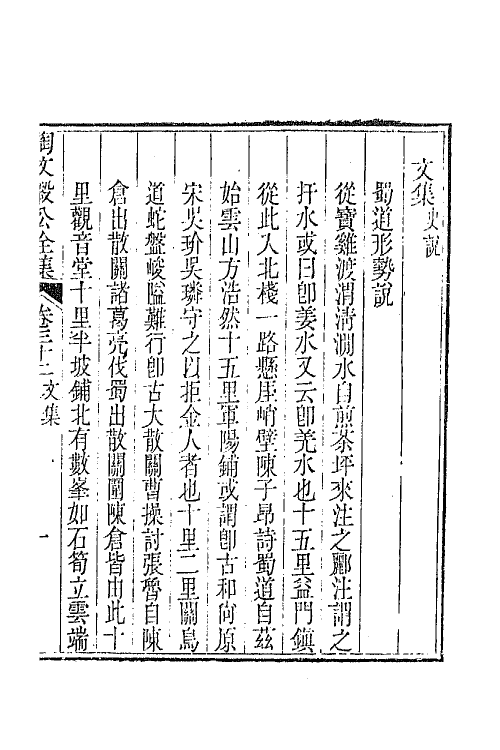 文集史說
蜀道形勢說
從寶雞渡渭清澗水自煎茶坪來注之酈注謂之
扞水或曰卽姜水又云卽羌水也十五里益門鎮
從此入北棧一路懸厓峭壁陳子昂詩蜀道自茲
始雲山方浩然十五里軍陽鋪或謂卽古和尚原
宋吳玠吳璘守之以拒金人者也十里二里關鳥
道蛇盤峻隘難行卽古大散關曹操討張魯自陳
倉出散關諸葛亮伐蜀出散關圍陳倉皆由此十
里觀音堂十里半坡鋪北有數峯如石筍立雲端
陶文毅公全集 卷三十二 文集 一